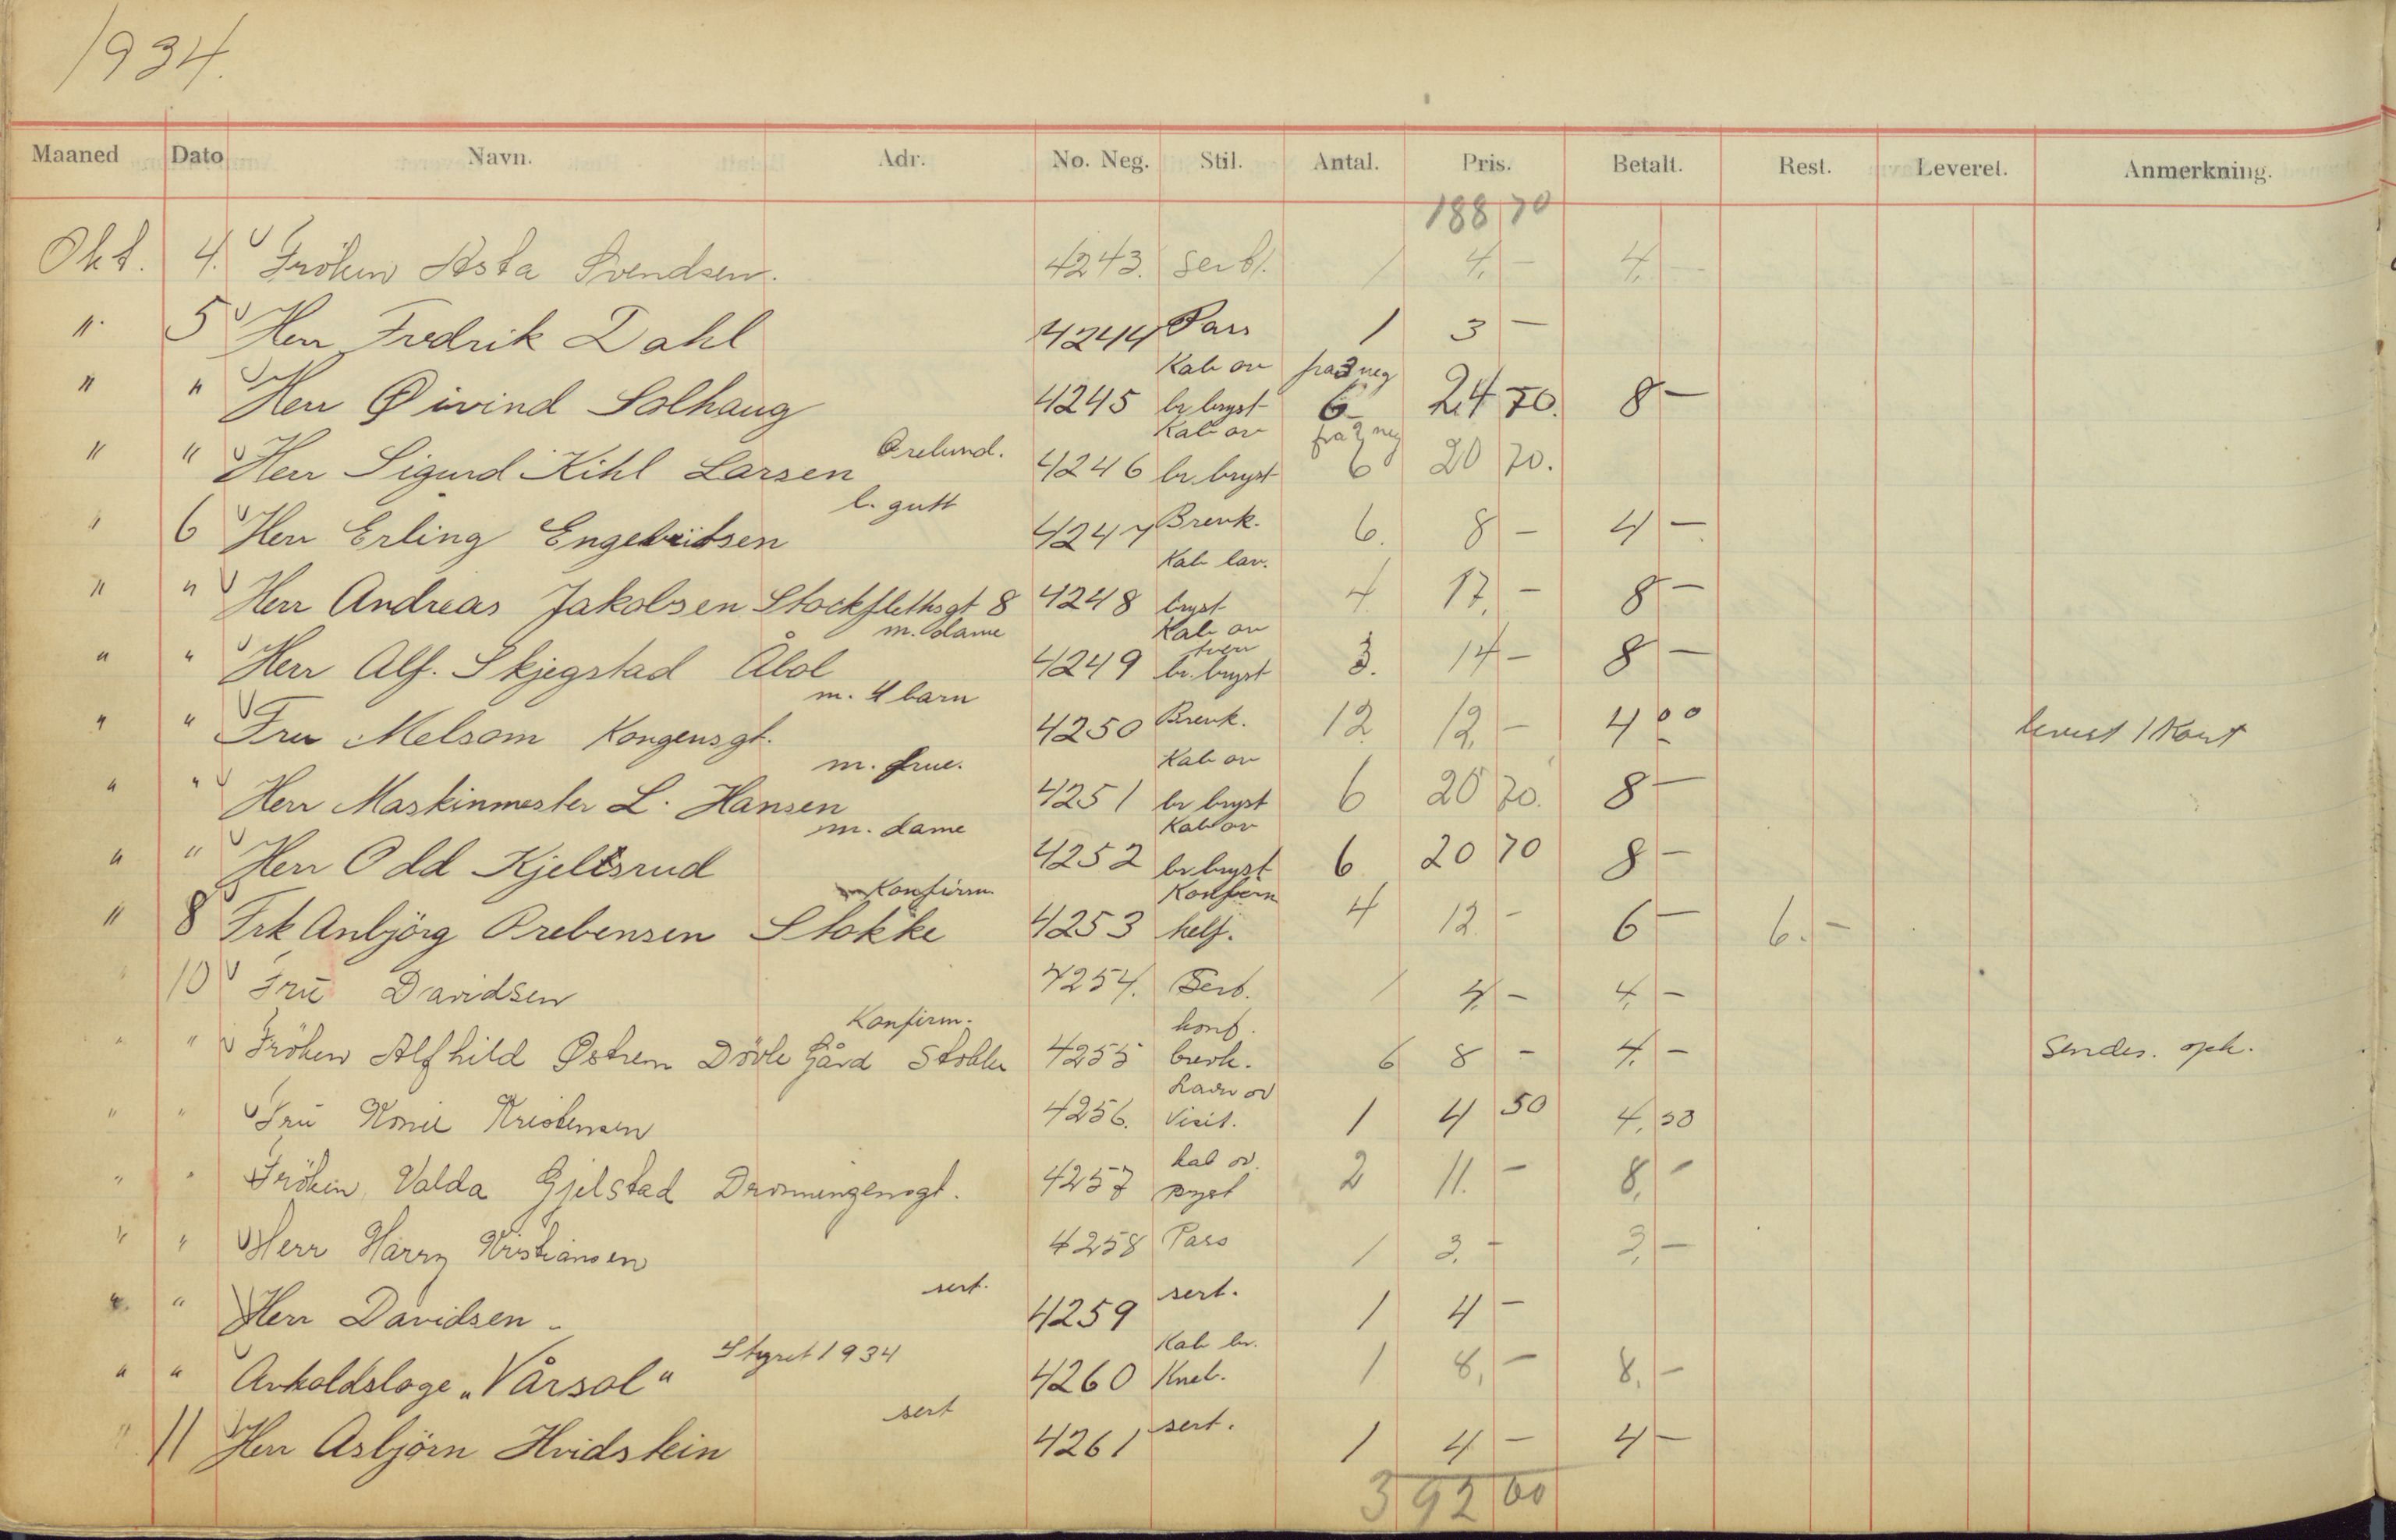 1934.
Maaned Dato Navn. Adr. No. Neg. Stil. Antal. Pris. Betalt. Rest. Leveret. Anmerkning.
188 70
Okt. 4. Fröken Asta Svendsen. 4243. Serb. 1 4, - 4, -
" 5 Herr Fredrik Dahl 4244 Pass 1 3 -
Kab ov fra 3 neg
" " Herr Øivind Solhaug 4245 br bryst 6 24 70. 8 -
Ørelund. Kab ov fra 2 neg
" " Herr Sigurd Kihl Larsen 4246 br. bryst 6 20 70.
l. gutt
" 6 Herr Erling Engebritsen 4247 Brevk. 6. 8 - 4 -
Kab lav.
" " Herr Andreas Jakobsen Stockflethsgt 8 4248 bryst 4 17, - 8 -
m. dame Kab ov
" " Herr Alf. Skjegstad 4249 br. bryst 3. 14 - 8 -
m. 4 barn
" " Fru Melsom Kongensgt. 4250 Brevk. 12 12, - 4 00 levert 1 Kart
m. frue. Kab ov
" " Herr Maskinmester L. Hansen 4251 br bryst 6 20 70. 8 -
m. dame Kab ov
" " Herr Odd Kjeltsrud 4252 br bryst 6 20 70 8 -
Konfirm Konfirm
" 8 Frk Anbjörg Prebensen Stokke 4253 helf. 4 12 - 6 - 6. -
" 10 Frü Davidsen 4254. Serb. 1 4, - 4, -
Konfirm. konf.
" " Fröken Alfhild Østrem Gård Stokke 4255 brevk. 6 8 - 4. - Sendes. opk.
" " Frü Kristensen 4256. Visit. 1 4 50 4,50
kab ov.
" " Fröken Valda Gjelstad Dronningensgt. 4257 bryst 2 11. - 8, -
" " Herr Harry Kristiansen 4258 Pass 1 3. - 3, -
sert. sert.
" " Herr Davidsen - 4259 1 4 -
Styret 1934 Kab br.
" " Avholdsloge "Vårsol" 4260 Kneb. 1 8, - 8, -
sert sert.
" 11 Herr Asbjörn Hvidstein 4261 1 4 - 4 -
392 60